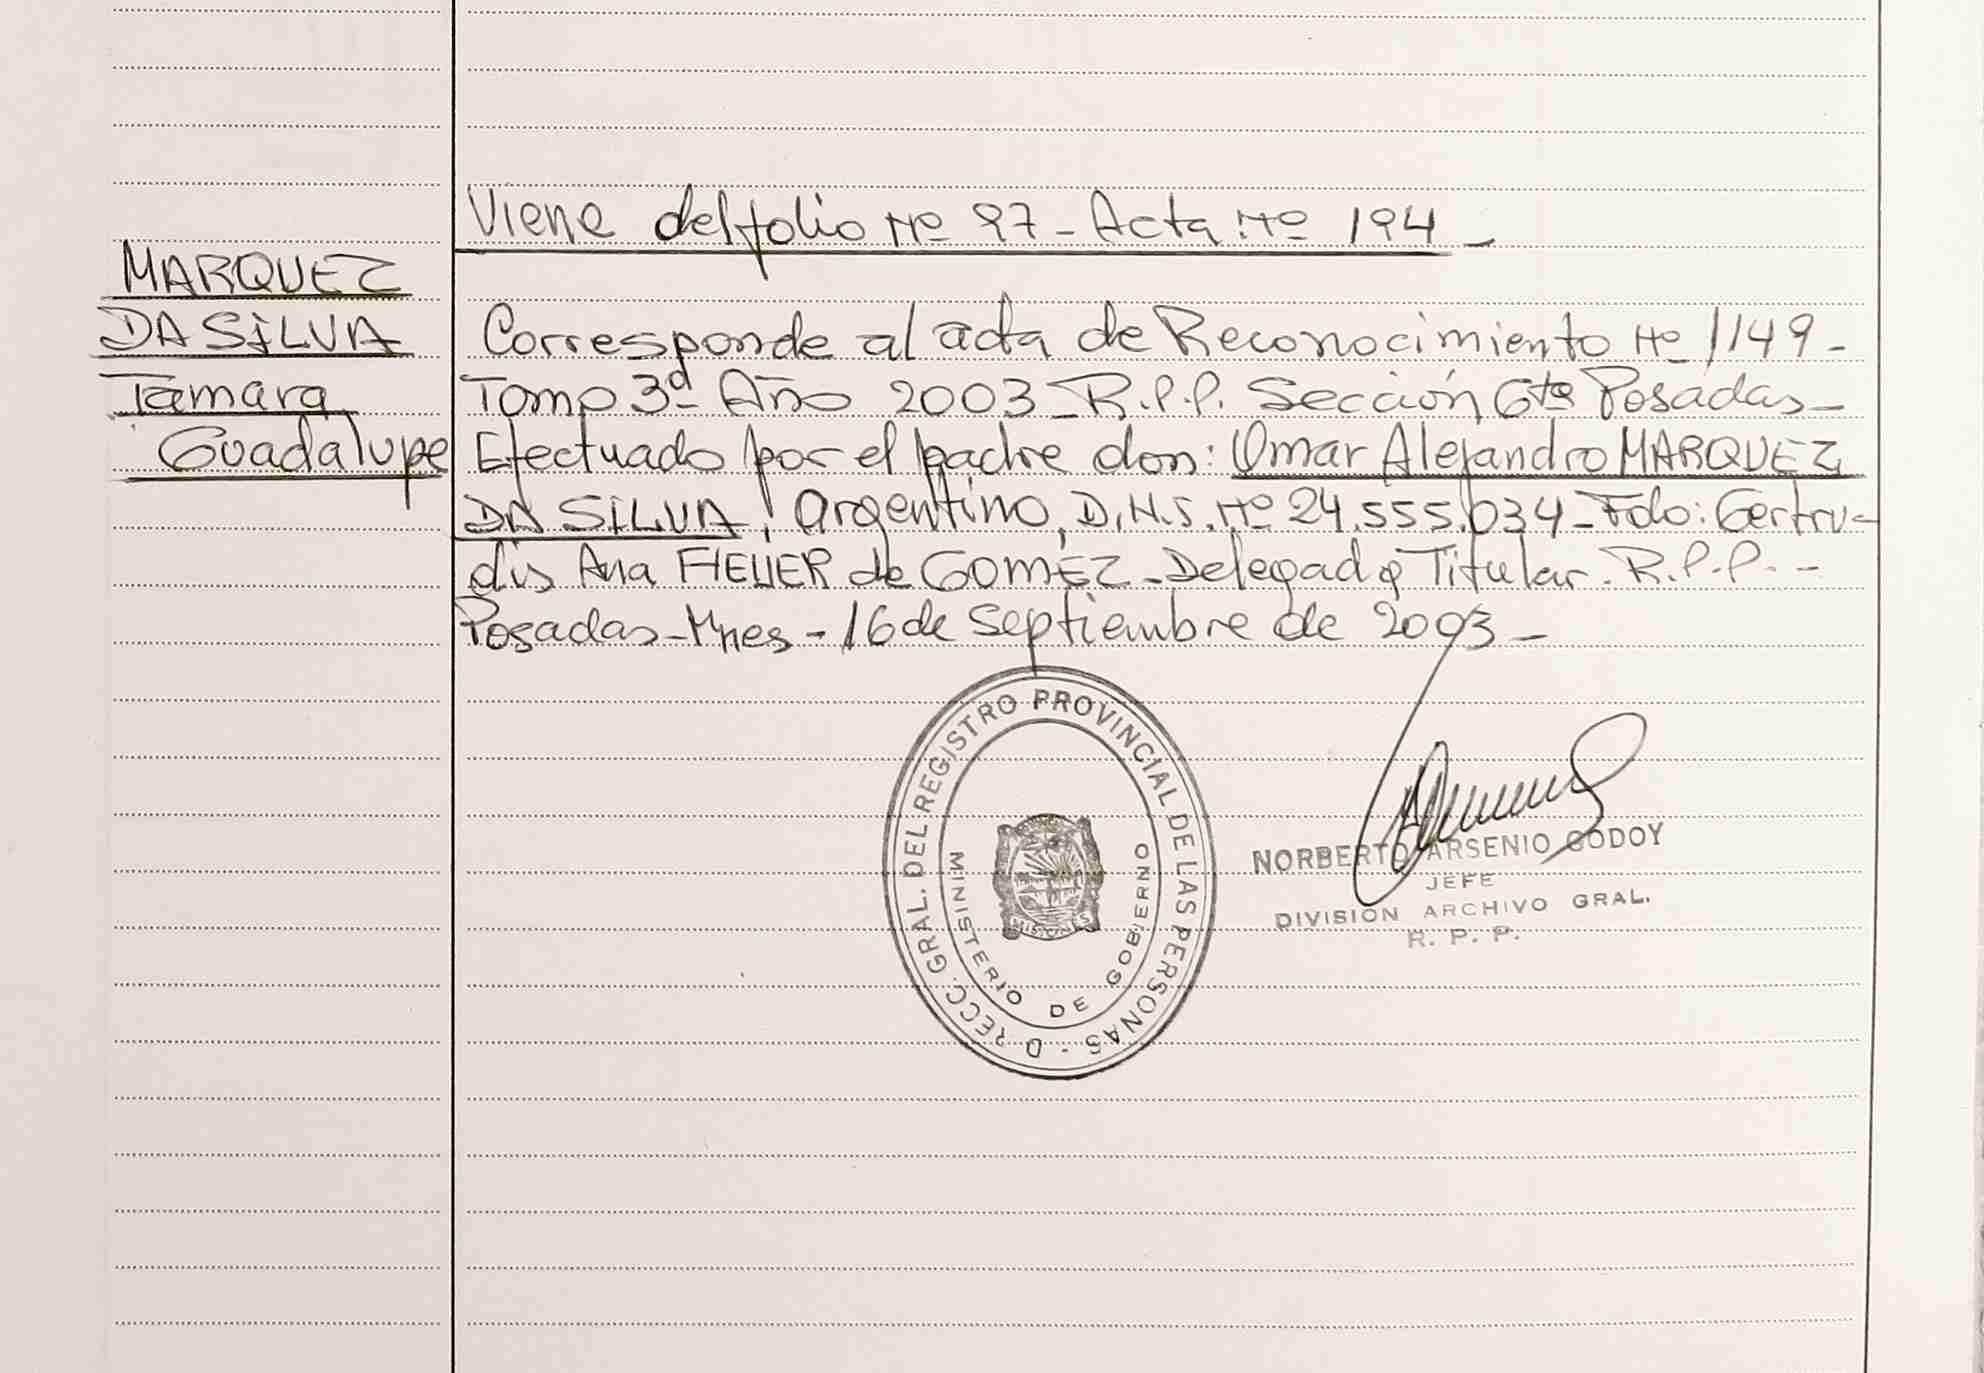 Viene del folio Nº 97 - Acta Nº 194 -
MARQUEZ
DA SILVA
Tamara
Guadalupe
Corresponde al acta de Reconocimiento Nº 1149 -
Tomo 3º Año 2003 - R.P.P. Sección 6ta Posadas -
Efectuado por el padre don: Omar Alejandro MARQUEZ
DA SILVA, argentino, D.N.I. Nº 24.555.034 - Fdo: Gertru-
dis Ana de GOMEZ - Delegada Titular. R.P.P. -
Posadas - Mnes - 16 de Septiembre de 2003 -
D RECC. GRAL. DEL REGISTRO PROVINCIAL DE LAS PERSONAS -
MINISTERIO DE GOBIERNO
MISIONES
NORBERTO ARSENIO GODOY
JEFE
DIVISION ARCHIVO GRAL.
R. P. P.